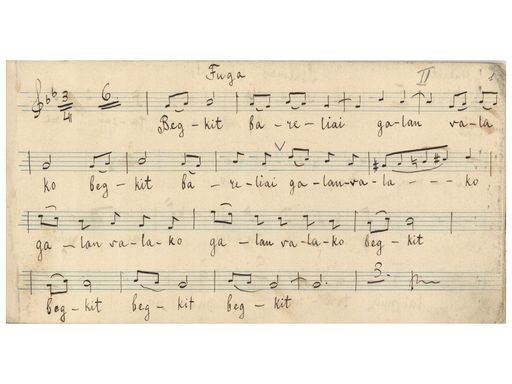 Fuga
II
3/4 6.
Beg-kit ba-re-liai ga-lan va-la
ko beg-kit ba-re-liai ga-lan-va-la---ko
ga-lan va-la-ko ga-lan va-la-ko beg-kit
3.
begkit beg-kit beg-kit